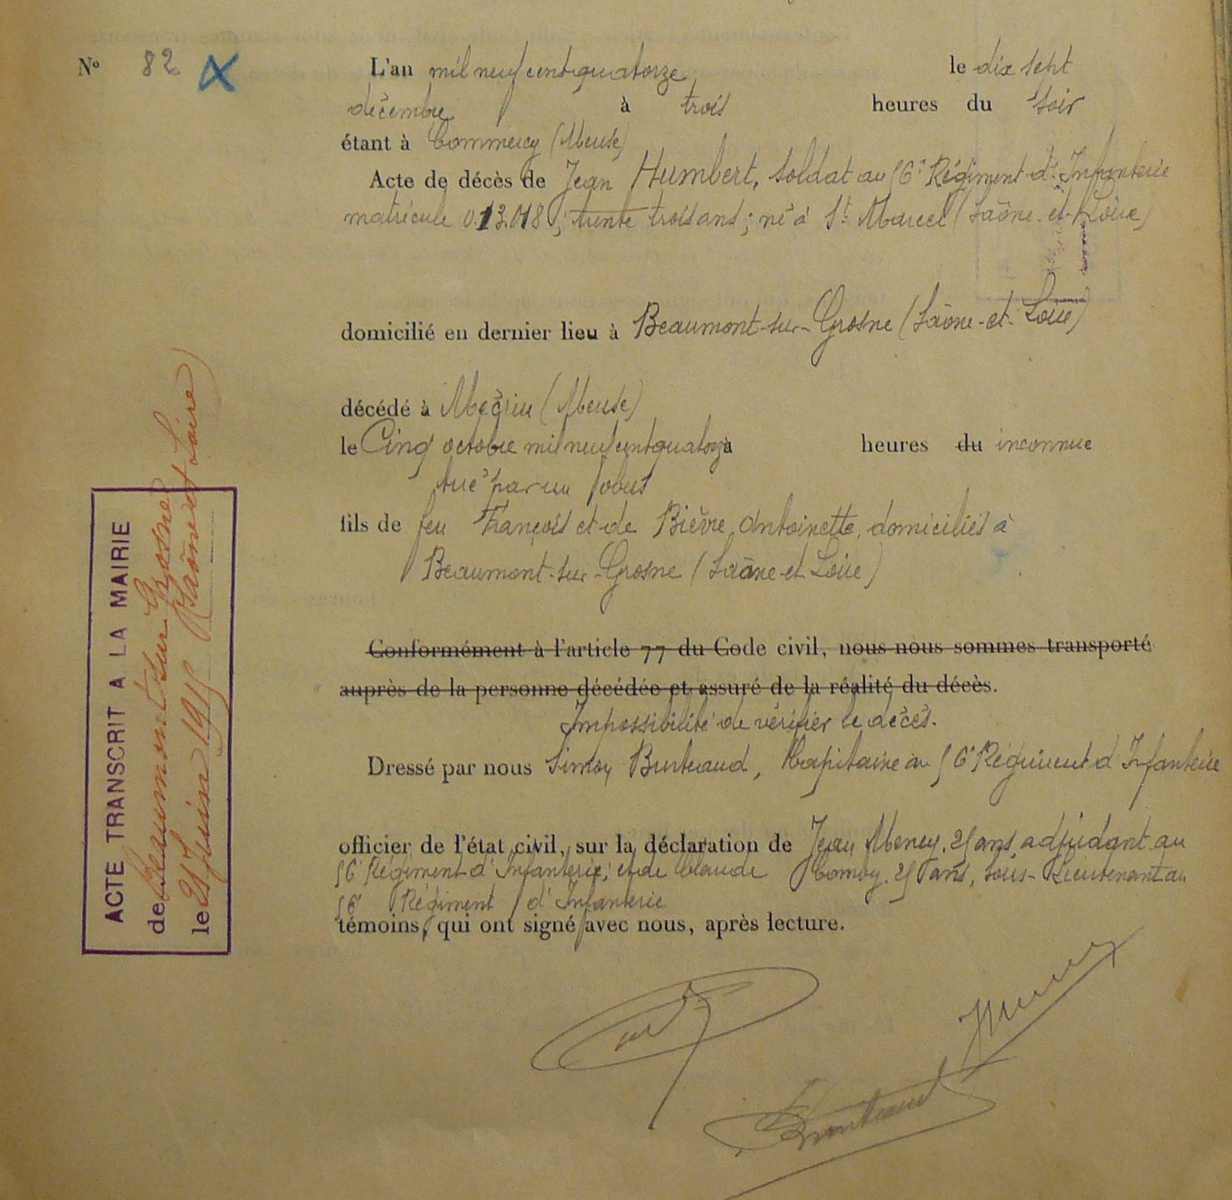 N° 82
L'an mil neuf cent quatorze le dix sept
décembre à trois heures du soir
étant à Commercy (Meuse)
Acte de décès de Jean Humbert, soldat au 56e Régiment d'Infanterie
matricule 013018; trente trois ans; né à St Marcel (Saône-et-Loire)
domicilié en dernier lieu à Beaumont-sur-Grosne (Saône-et-Loire)
décédé à Mécrin (Meuse)
le Cinq octobre mil neuf cent quatorze à heures du inconnue
tué par un obus
fils de feu François et de Bièvre Antoinette, domiciliés à
Beaumont-sur-Grosne (Saône-et-Loire)
Conformément à l'article 77 du Code civil, nous nous sommes transporté
auprès de la personne décédée et assuré de la réalité du décès.
Impossibilité de vérifier le décès.
Dressé par nous Simon Burteaud, Capitaine au 56e Régiment d'Infanterie
officier de l'état civil, sur la déclaration de Jean Meney, 25 ans, adjudant au
56e Régiment d'Infanterie; et de Claude 25 ans, sous-Lieutenant au
56e Régiment d'Infanterie
témoins, qui ont signé avec nous, après lecture.
ACTE TRANSCRIT A LA MAIRIE
de Beaumont sur Grosne (Saône et Loire)
le 25 Juin 1915